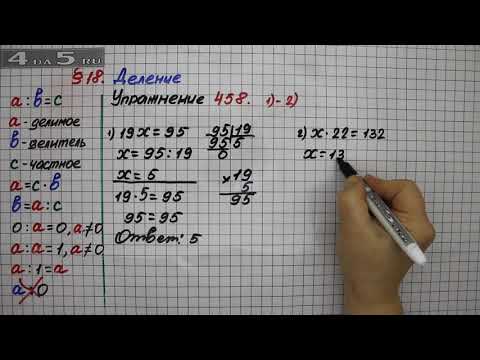 4 DA 5.RU
§18. Деление
Упражнение 458. 1)-2)
a : b = c
a - делимое
b - делитель
c - частное
a = c · b
b = a : c
0 : a = 0, a ≠ 0
a : a = 1, a ≠ 0
a : 1 = a
a : 0
1) 19x = 95
x = 95 : 19
x = 5
19 · 5 = 95
95 = 95
Ответ: 5
95 | 19
95 | 5
0
× 19
5
95
2) x · 22 = 132
x = 13